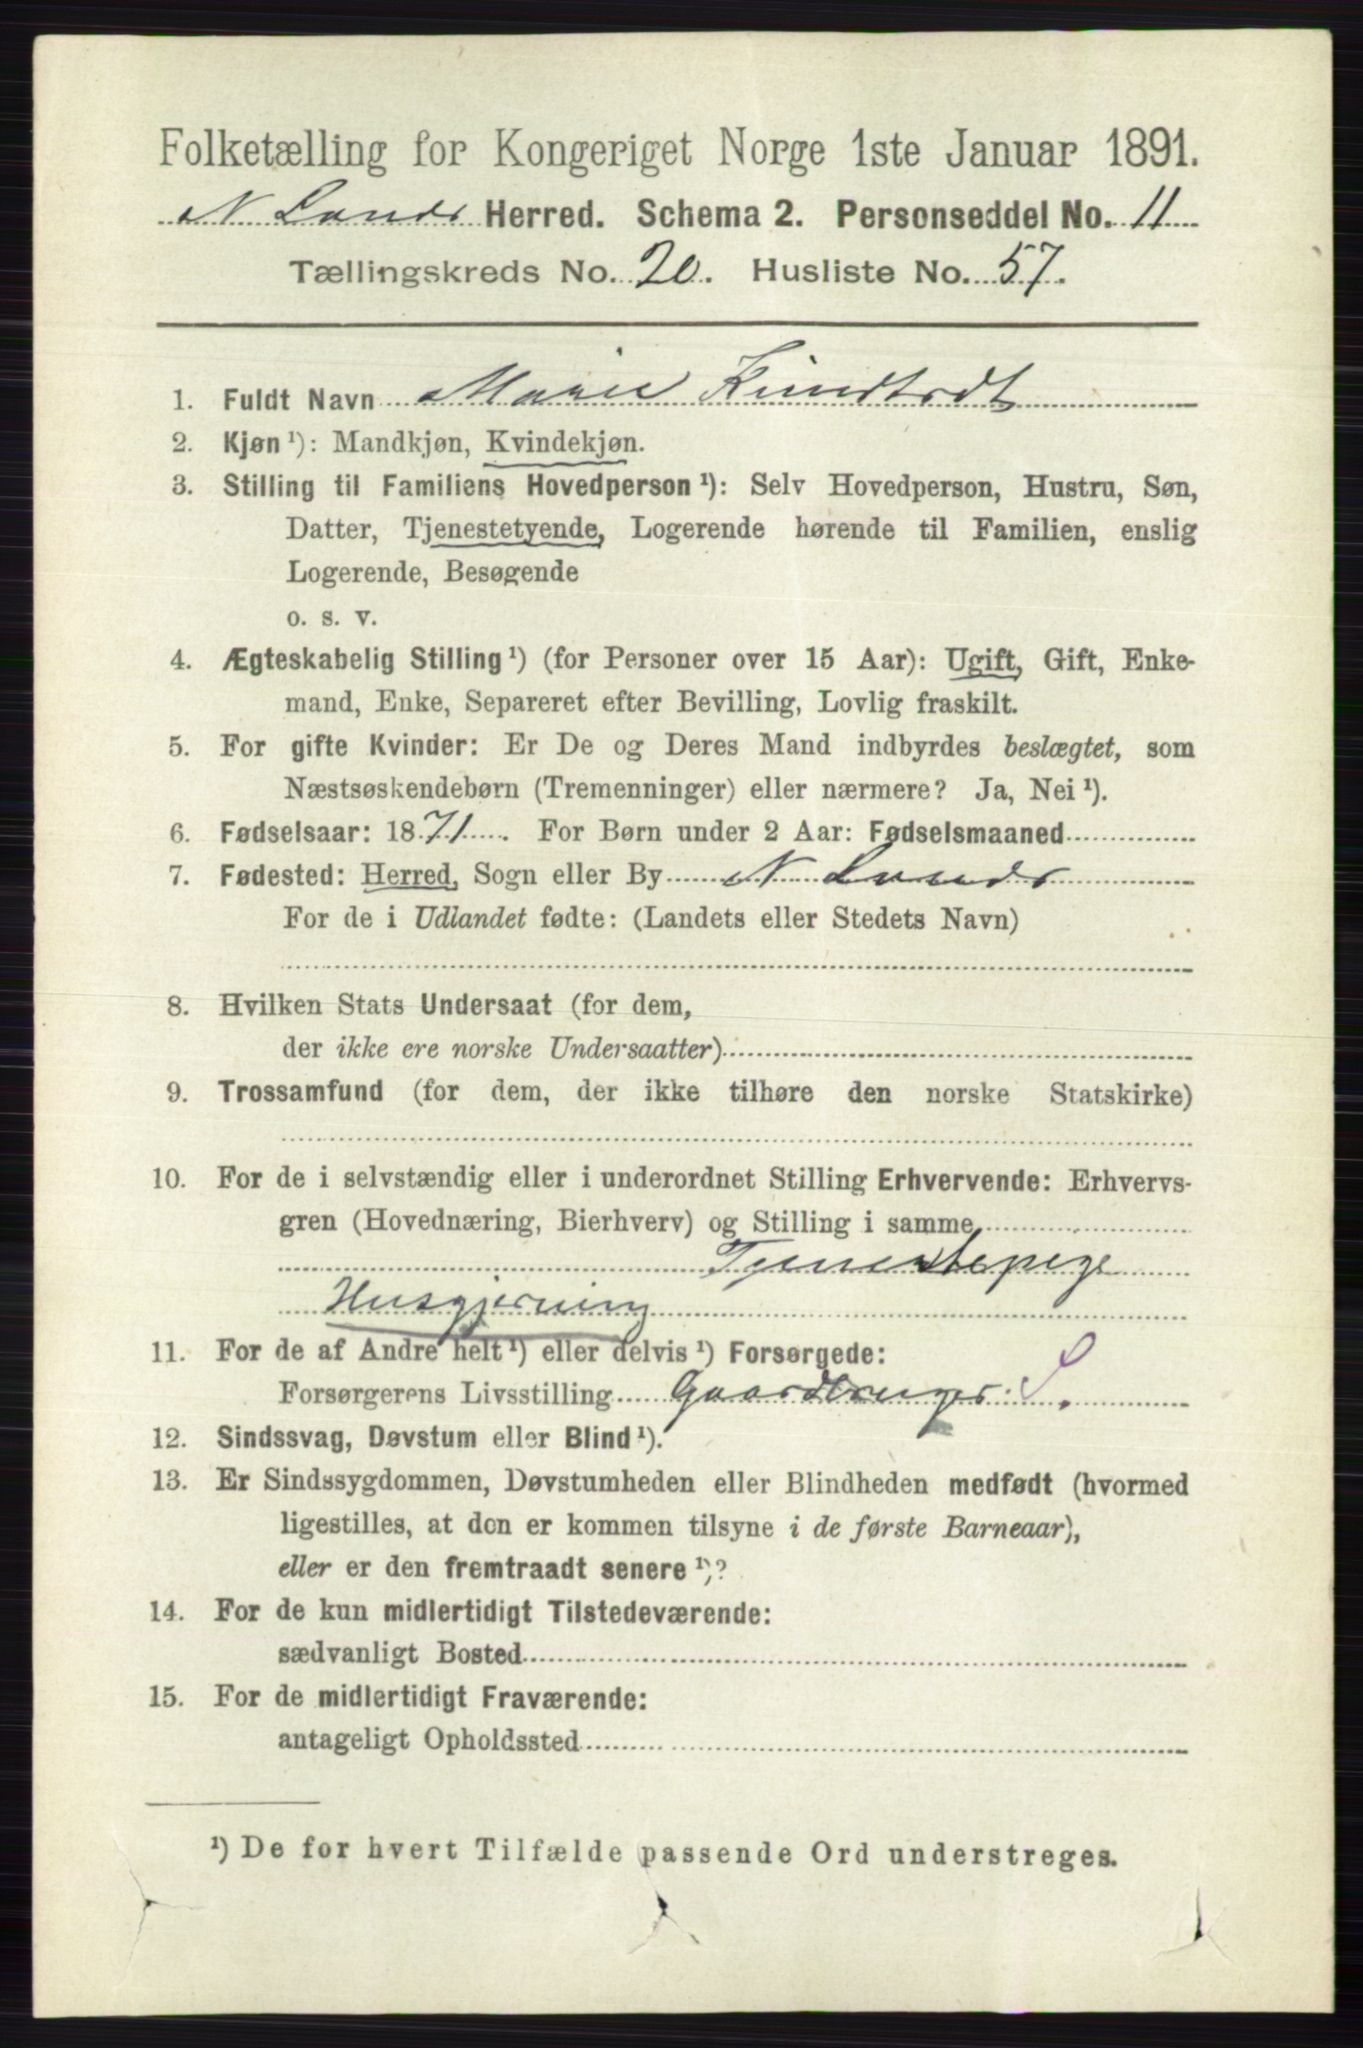 Folketælling for Kongeriget Norge 1ste Januar 1891.
N Lands Herred. Schema 2. Personseddel No. 11
Tællingskreds No. 20. Husliste No. 57.
1. Fuldt Navn Marie
2. Kjøn ¹): Mandkjøn, Kvindekjøn.
3. Stilling til Familiens Hovedperson ¹): Selv Hovedperson, Hustru, Søn,
Datter, Tjenestetyende, Logerende hørende til Familien, enslig
Logerende, Besøgende
o. s. v.
4. Ægteskabelig Stilling ¹) (for Personer over 15 Aar): Ugift, Gift, Enke-
mand, Enke, Separeret efter Bevilling, Lovlig fraskilt.
5. For gifte Kvinder: Er De og Deres Mand indbyrdes beslægtet, som
Næstsøskendebørn (Tremenninger) eller nærmere? Ja, Nei ¹).
6. Fødselsaar: 1871. For Børn under 2 Aar: Fødselsmaaned
7. Fødested: Herred, Sogn eller By N Lands
For de i Udlandet fødte: (Landets eller Stedets Navn)
8. Hvilken Stats Undersaat (for dem,
der ikke ere norske Undersaatter)
9. Trossamfund (for dem, der ikke tilhøre den norske Statskirke)
10. For de i selvstændig eller i underordnet Stilling Erhvervende: Erhvervs-
gren (Hovednæring, Bierhverv) og Stilling i samme
Tjenestepige
Husgjerning
11. For de af Andre helt ¹) eller delvis ¹) Forsørgede:
Forsørgerens Livsstilling Gaardbruger S.
12. Sindssvag, Døvstum eller Blind ¹).
13. Er Sindssygdommen, Døvstumheden eller Blindheden medfødt (hvormed
ligestilles, at den er kommen tilsyne i de første Barneaar),
eller er den fremtraadt senere ¹)?
14. For de kun midlertidigt Tilstedeværende:
sædvanligt Bosted
15. For de midlertidigt Fraværende:
antageligt Opholdssted
¹) De for hvert Tilfælde passende Ord understreges.